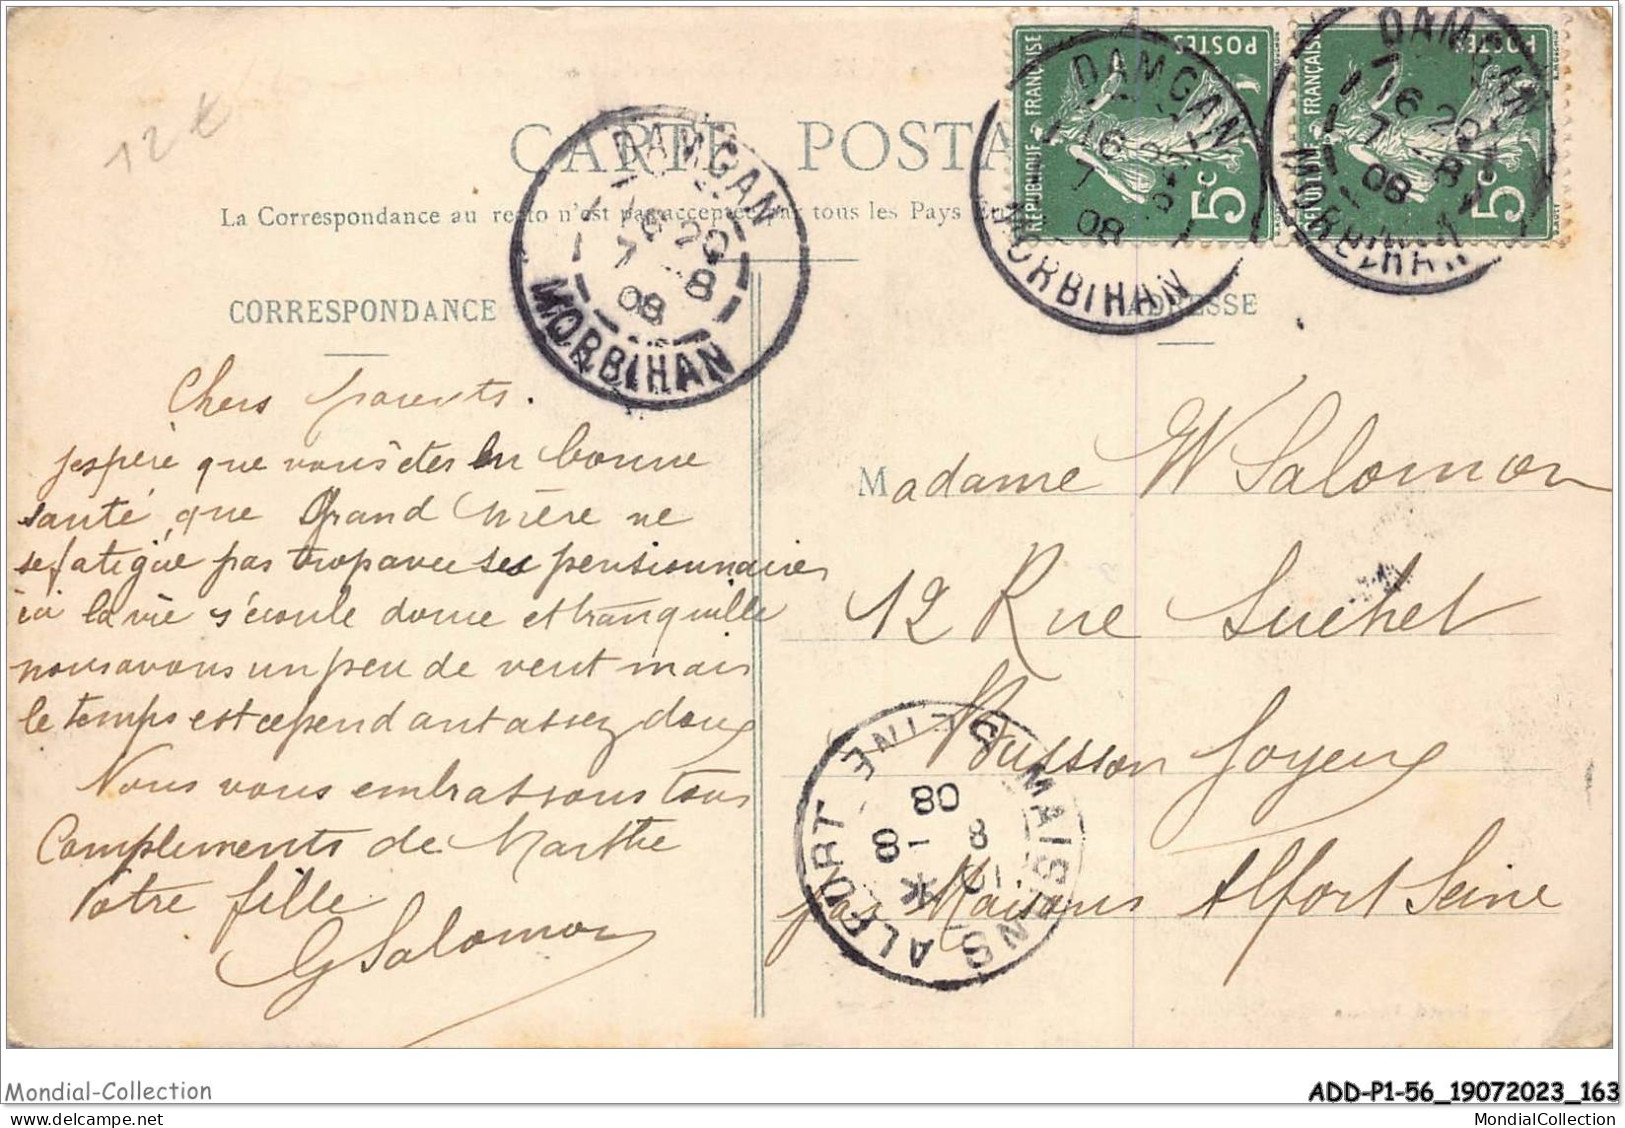 12 €
CARTE POSTA
La Correspondance au recto n'est pas acceptée par tous les Pays
CORRESPONDANCE
ADRESSE
DAMGAN
16 20
7 - 8
08
MORBIHAN
RÉPUBLIQUE FRANÇAISE
POSTES
5c
DAMGAN
16
7 8
08
MORBIHAN
FRANÇAISE
POSTES
5c
DAMGAN
16 20
7 - 8
08
MORBIHAN
Chers parents.
jespère que vous êtes en bonne
santé que Grand Mère ne
se fatigue pas trop avec ses pensionnaires
ici la vie s'écoule douce et tranquille
nous avons un peu de vent mais
le temps est cependant assez doux
Nous vous embrassons tous
Compliments de Marthe
Votre fille
G Salomon
Madame W Salomon
12 Rue Suchet
Buisson Joyeux
par Maisons Alfort Seine
MAISONS ALFORT
SEINE
8 - 8
08
Mondial-Collection
ADD-P1-56_19072023_163
MondialCollection